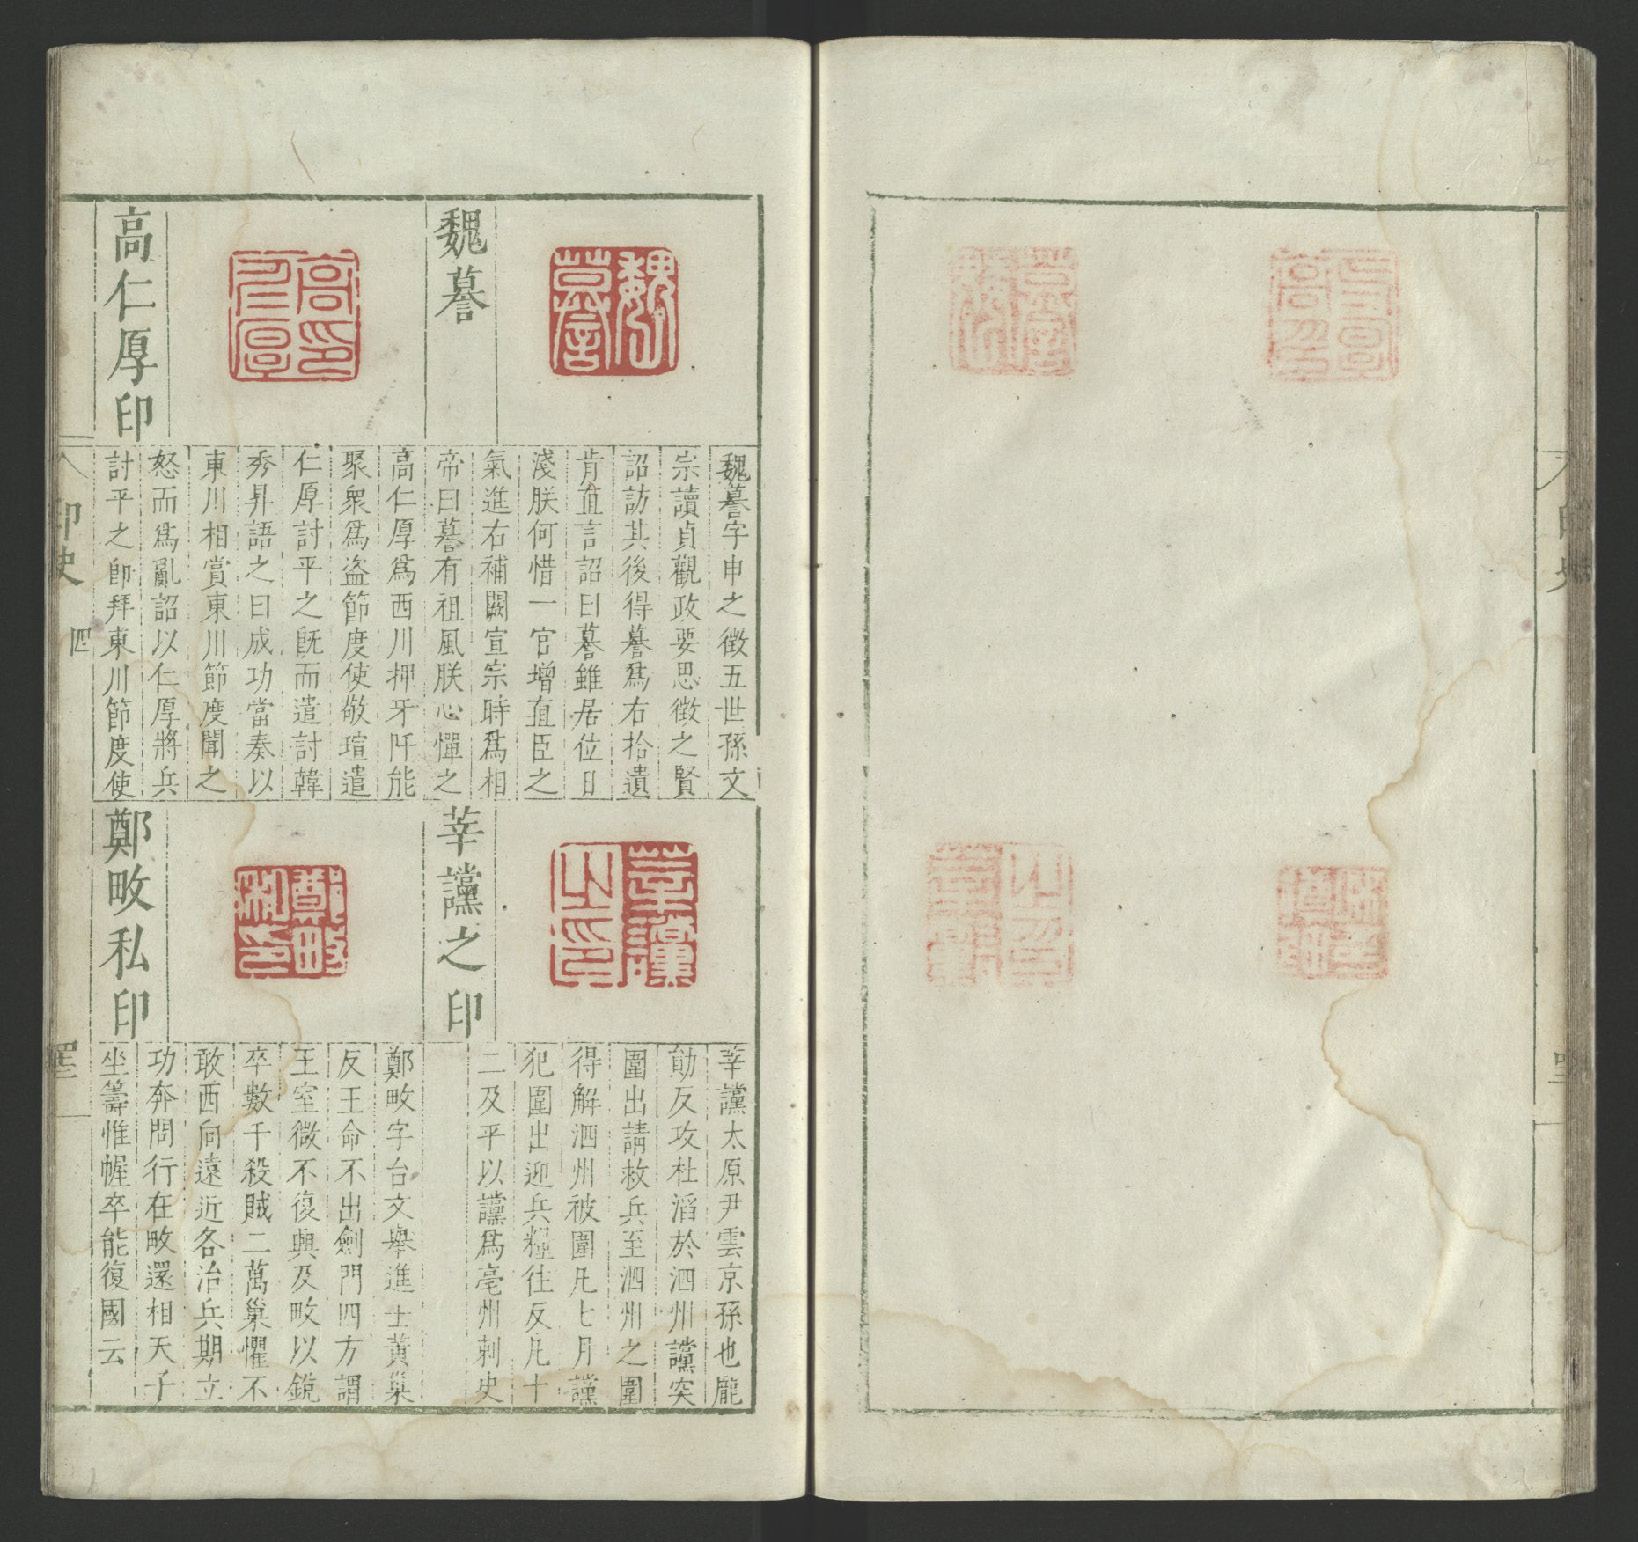 魏謩
魏謩字申之徵五世孫文
宗讀貞觀政要思徵之賢
詔訪其後得謩爲右拾遺
肯直言詔曰謩雖居位日
淺朕何惜一官增直臣之
氣進右補闕宣宗時爲相
帝曰謩有祖風朕心憚之
高仁厚印
高仁厚爲西川押牙阡能
聚衆爲盗節度使敬瑄遣
仁厚討平之既而遣討韓
秀昇語之曰成功當奏以
東川相賞東川節度聞之
怒而爲亂詔以仁厚將兵
討平之卽拜東川節度使
莘讜之印
莘讜太原尹雲京孫也龐
勛反攻杜滔於泗州讜突
圍出請救兵至泗州之圍
得解泗州被圍凡七月讜
犯圍出迎兵糧往反凡十
二及平以讜爲亳州刺史
鄭畋私印
鄭畋字台文舉進士黃巢
反王命不出劍門四方謂
王室微不復興及畋以銳
卒數千殺賊二萬巢懼不
敢西向遠近各治兵期立
功奔問行在畋還相天子
坐籌惟幄卒能復國云
印史
四